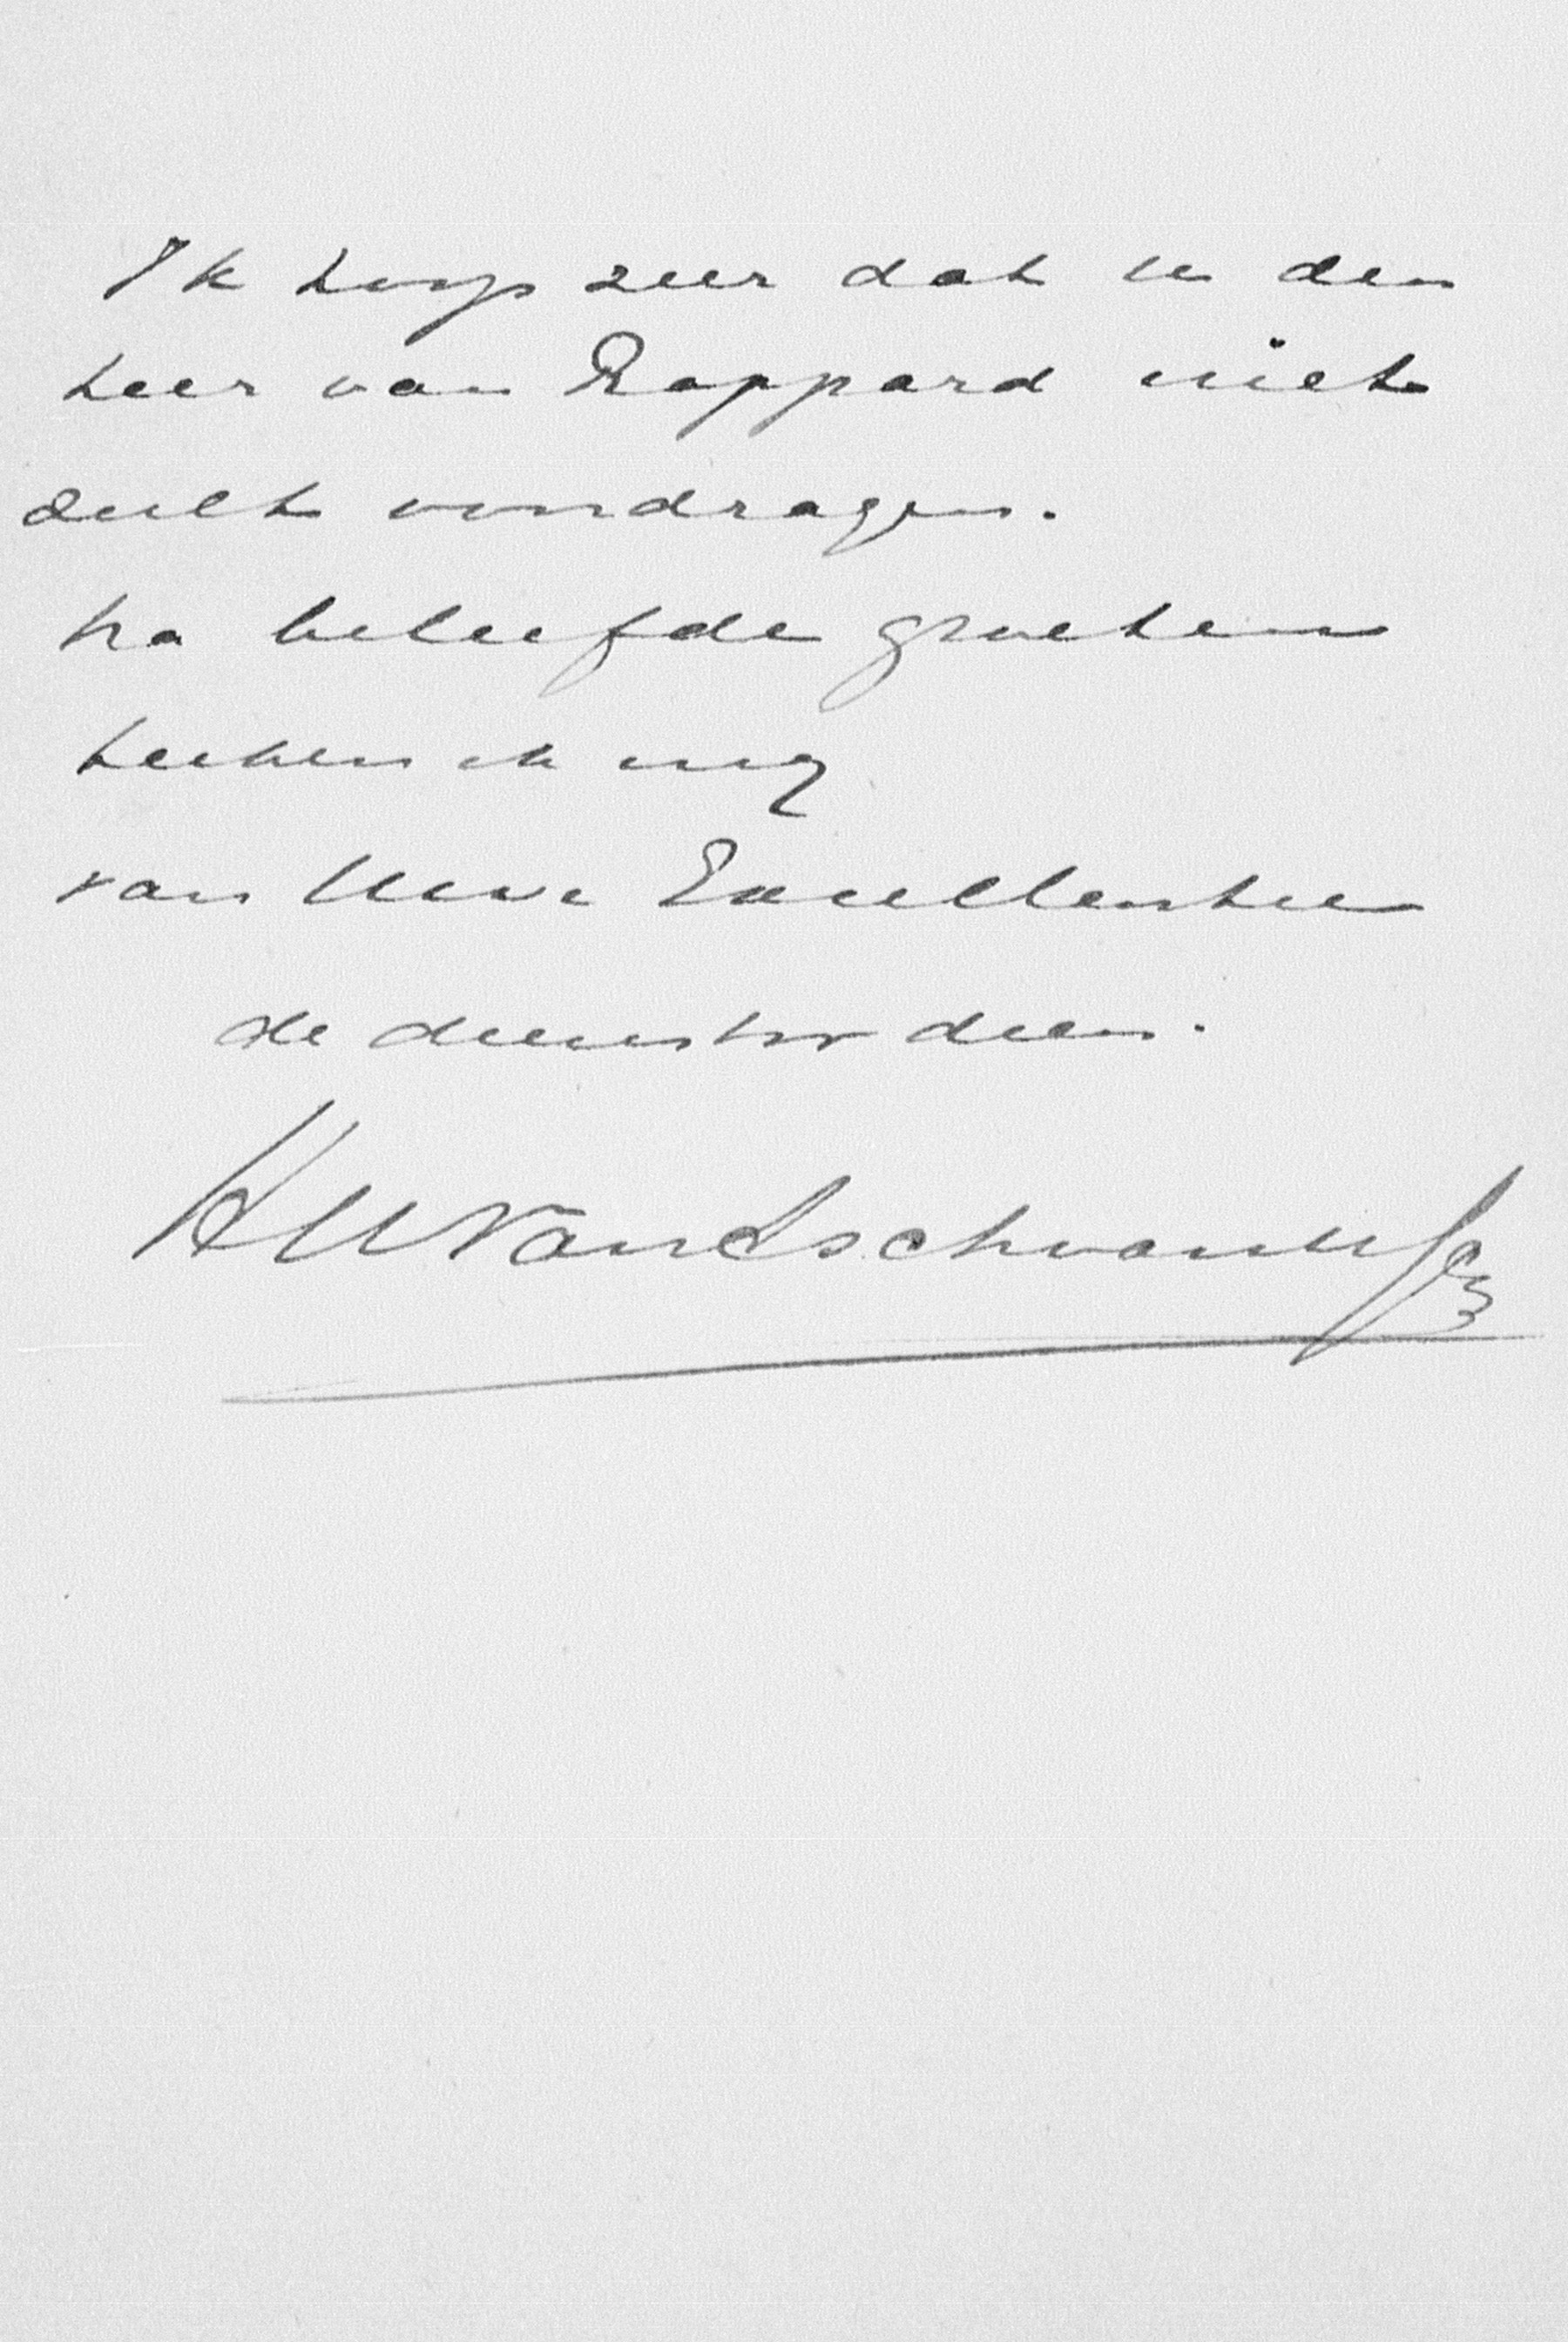 Ik hoop zeer dat u den
heer van Rappard niet
zult voordragen.
Na beleefde groeten
teeken ik mij
van Uwe Excellentie
de dienstw dien.